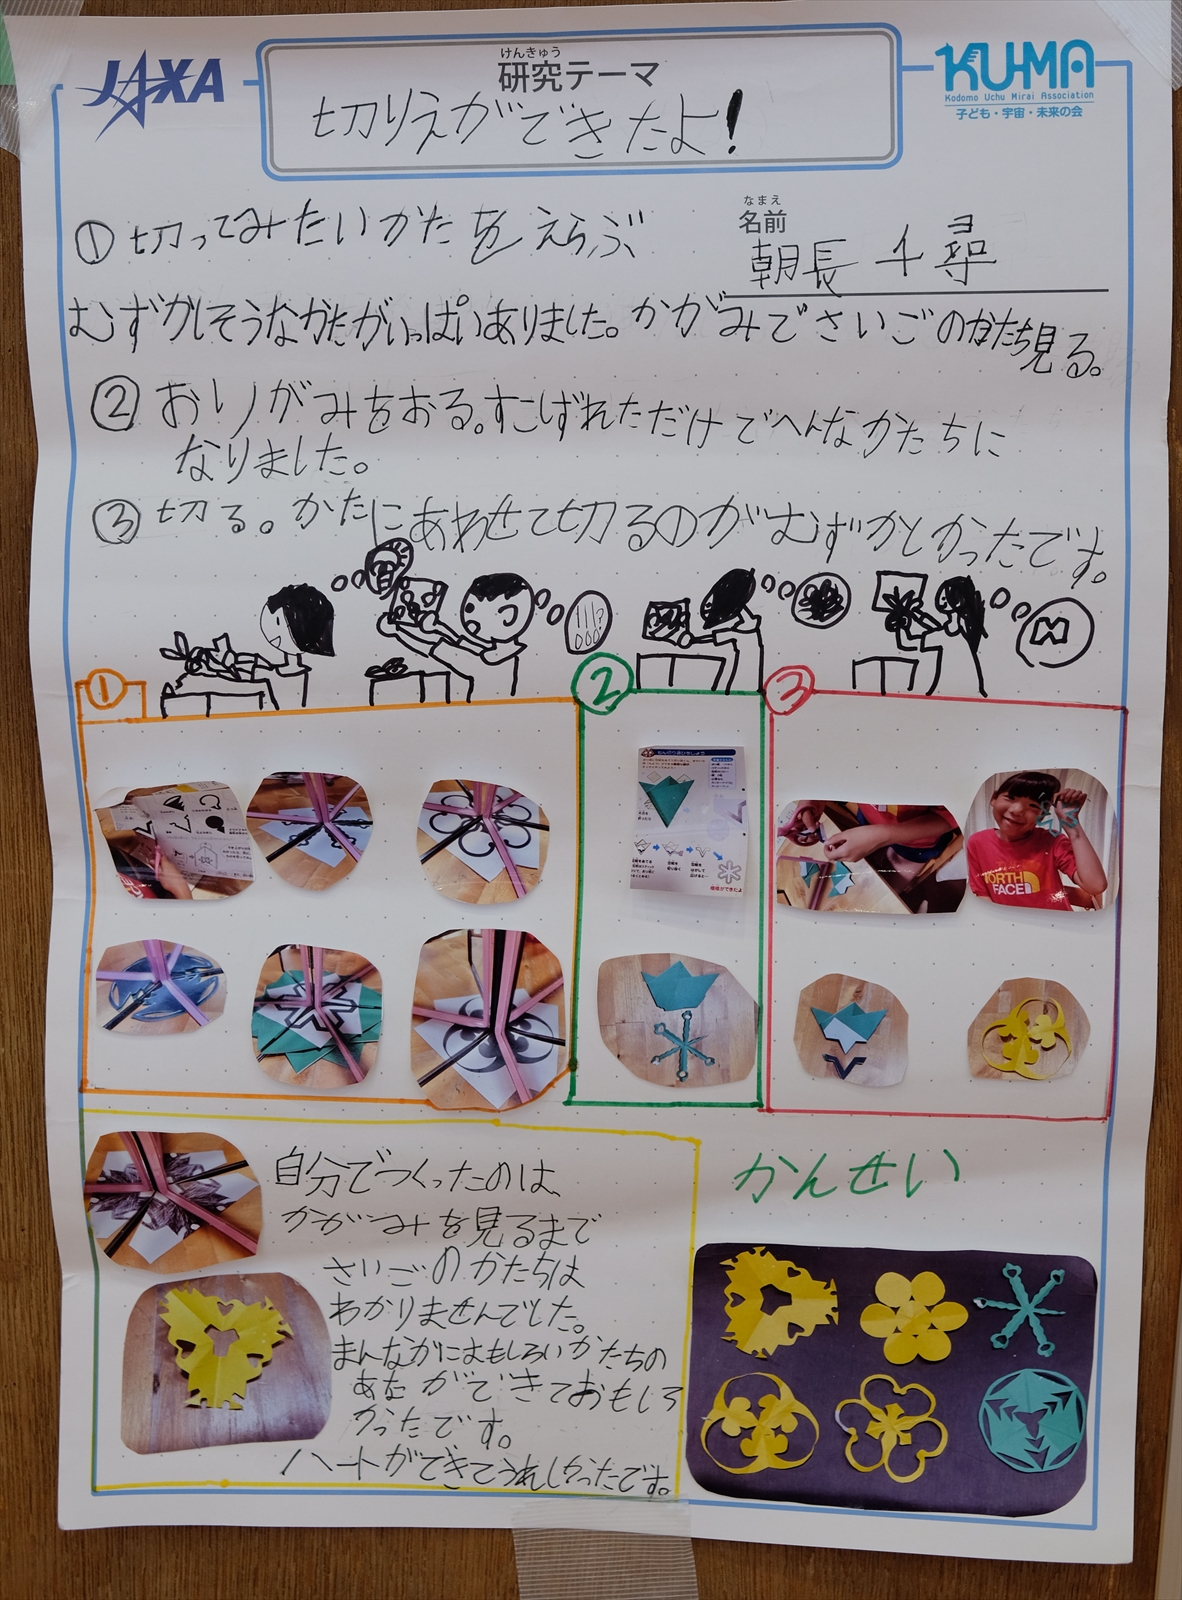 JAXA
けんきゅう
研究テーマ
切りえができたよ!
KU-MA
Kodomo Uchu Mirai Association
子ども・宇宙・未来の会
①切ってみたいかたをえらぶ
なまえ
名前
朝長 千尋
むずかしそうなかたがいっぱいありました。かがみでさいごのかたち見る。
②おりがみをおる。すこしずれただけでへんなかたちに
なりました。
③切る。かたにあわせて切るのがむずかしかったです。
① ② ③
THE
NORTH
FACE
自分でつくったのは、
かがみを見るまで
さいごのかたちは
わかりませんでした。
まんなかにおもしろいかたちの
あながができておもしろ
かったです。
ハートができてうれしかったです。
かんせい